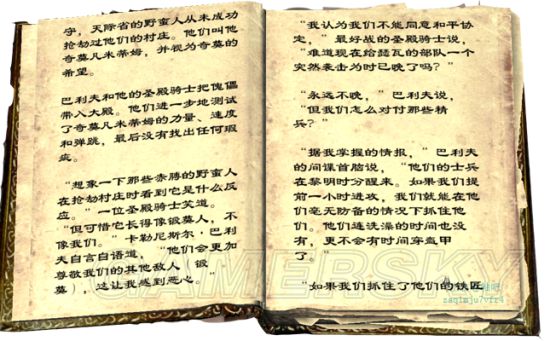 守，天际省的野蛮人从未成功
抢劫过他们的村庄。他们叫他
奇莫凡米蒂姆，并视为奇莫的
希望。
巴利夫和他的圣殿骑士把傀儡
带入大殿。他们进一步地测试
了奇莫凡米蒂姆的力量、速度
和弹跳，最后没有找出任何瑕
疵。
"想象一下那些赤膊的野蛮人
在抢劫村庄时看到它是什么反
应。" 一位圣殿骑士笑道。
"但可惜它长得像锻莫人，不
像我们。" 卡勒尼斯尔·巴利
夫自言自语道，"他们会更加
尊敬我们的其他敌人（锻
莫），这让我感到恶心。"
"我认为我们不能同意和平协
定，" 最好战的圣殿骑士说，
"难道现在给瑟瓦的部队一个
突然袭击为时已晚了吗？"
"永远不晚，" 巴利夫说，
"但我们怎么对付那些精
兵？"
"据我掌握的情报，" 巴利夫
的间谍首脑说，"他们的士兵
在黎明时分醒来。如果我们提
前一小时进攻，我们就能在他
们毫无防备的情况下抓住他
们。他们连洗澡的时间也没
有，更不会有时间穿盔甲
了。"
"如果我们抓住了他们的铁匠
GAMERSKY
zaq1mju7vfr4